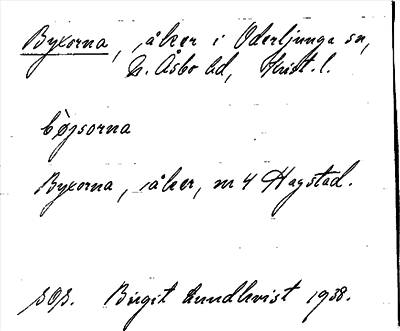 Byxorna, åker i Oderljunga sn,
N. Åsbo hd, Krist. l.
Byxorna, åker, nr 4 Hagstad.
SOS. Birgit Lundkvist 1938.